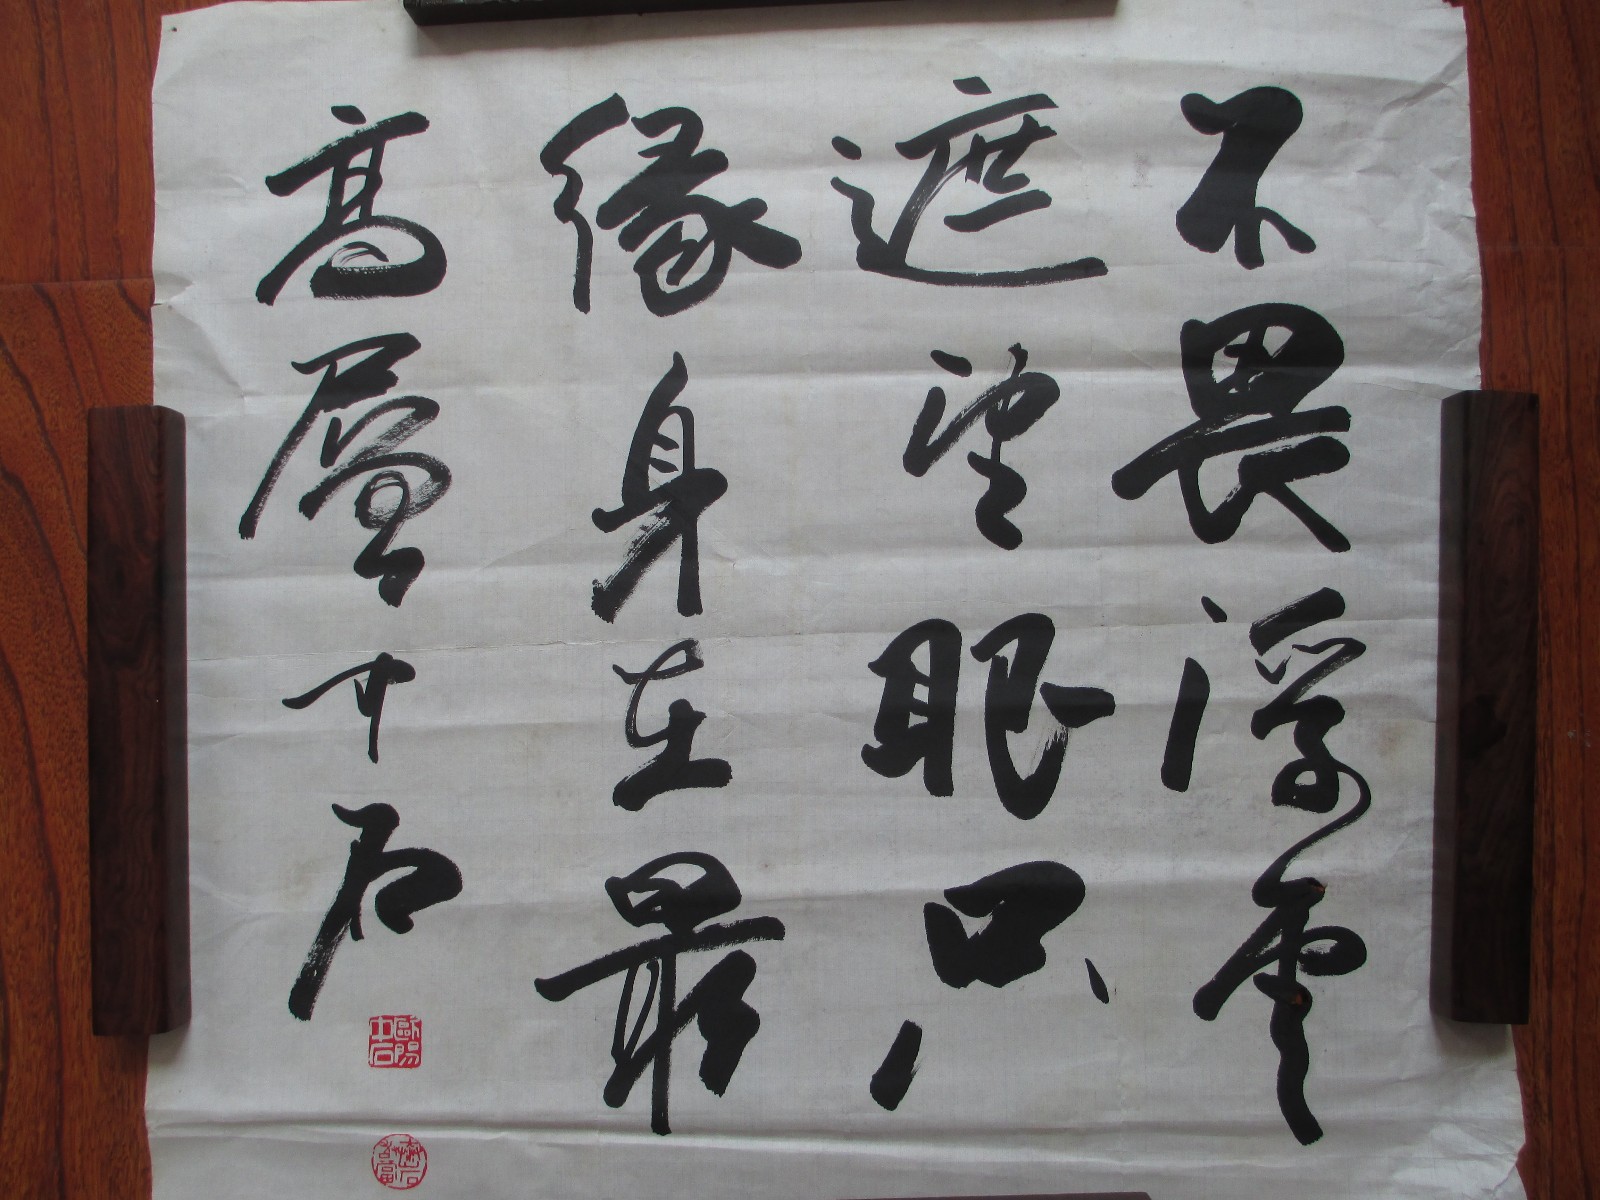 不畏浮雲
遮望眼只
緣身在最
高層中石
歐陽中石